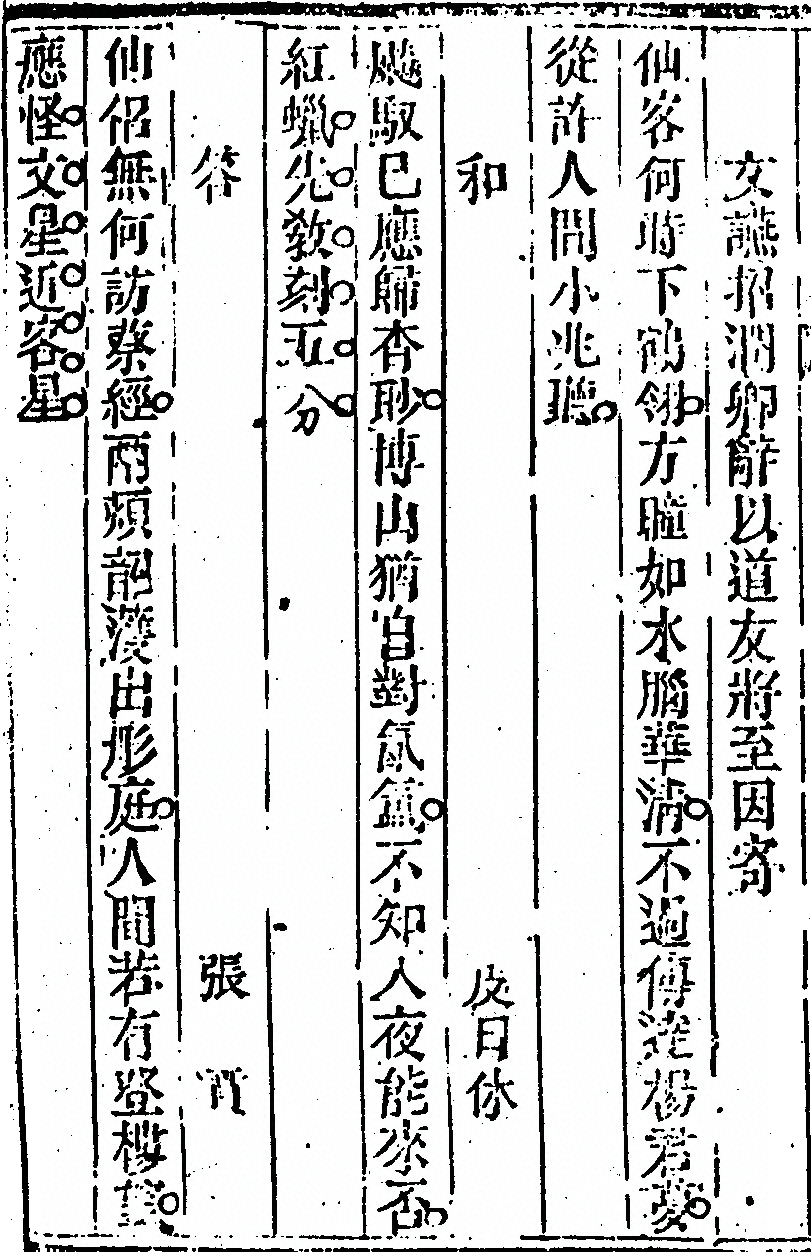 文讌招潤卿辭以道友將至因寄
仙客何時下鶴翎方瞳如水腦華清不過傳達楊君夢
從許人間小兆聽
和 皮日休
飈馭已應歸杳眇博山猶自對氤氳不知入夜能來否
紅蠟先教刻五分
答 張賁
仙侶無何訪蔡經兩煩韶濩出彤庭人間若有登樓望
應怪文星近客星